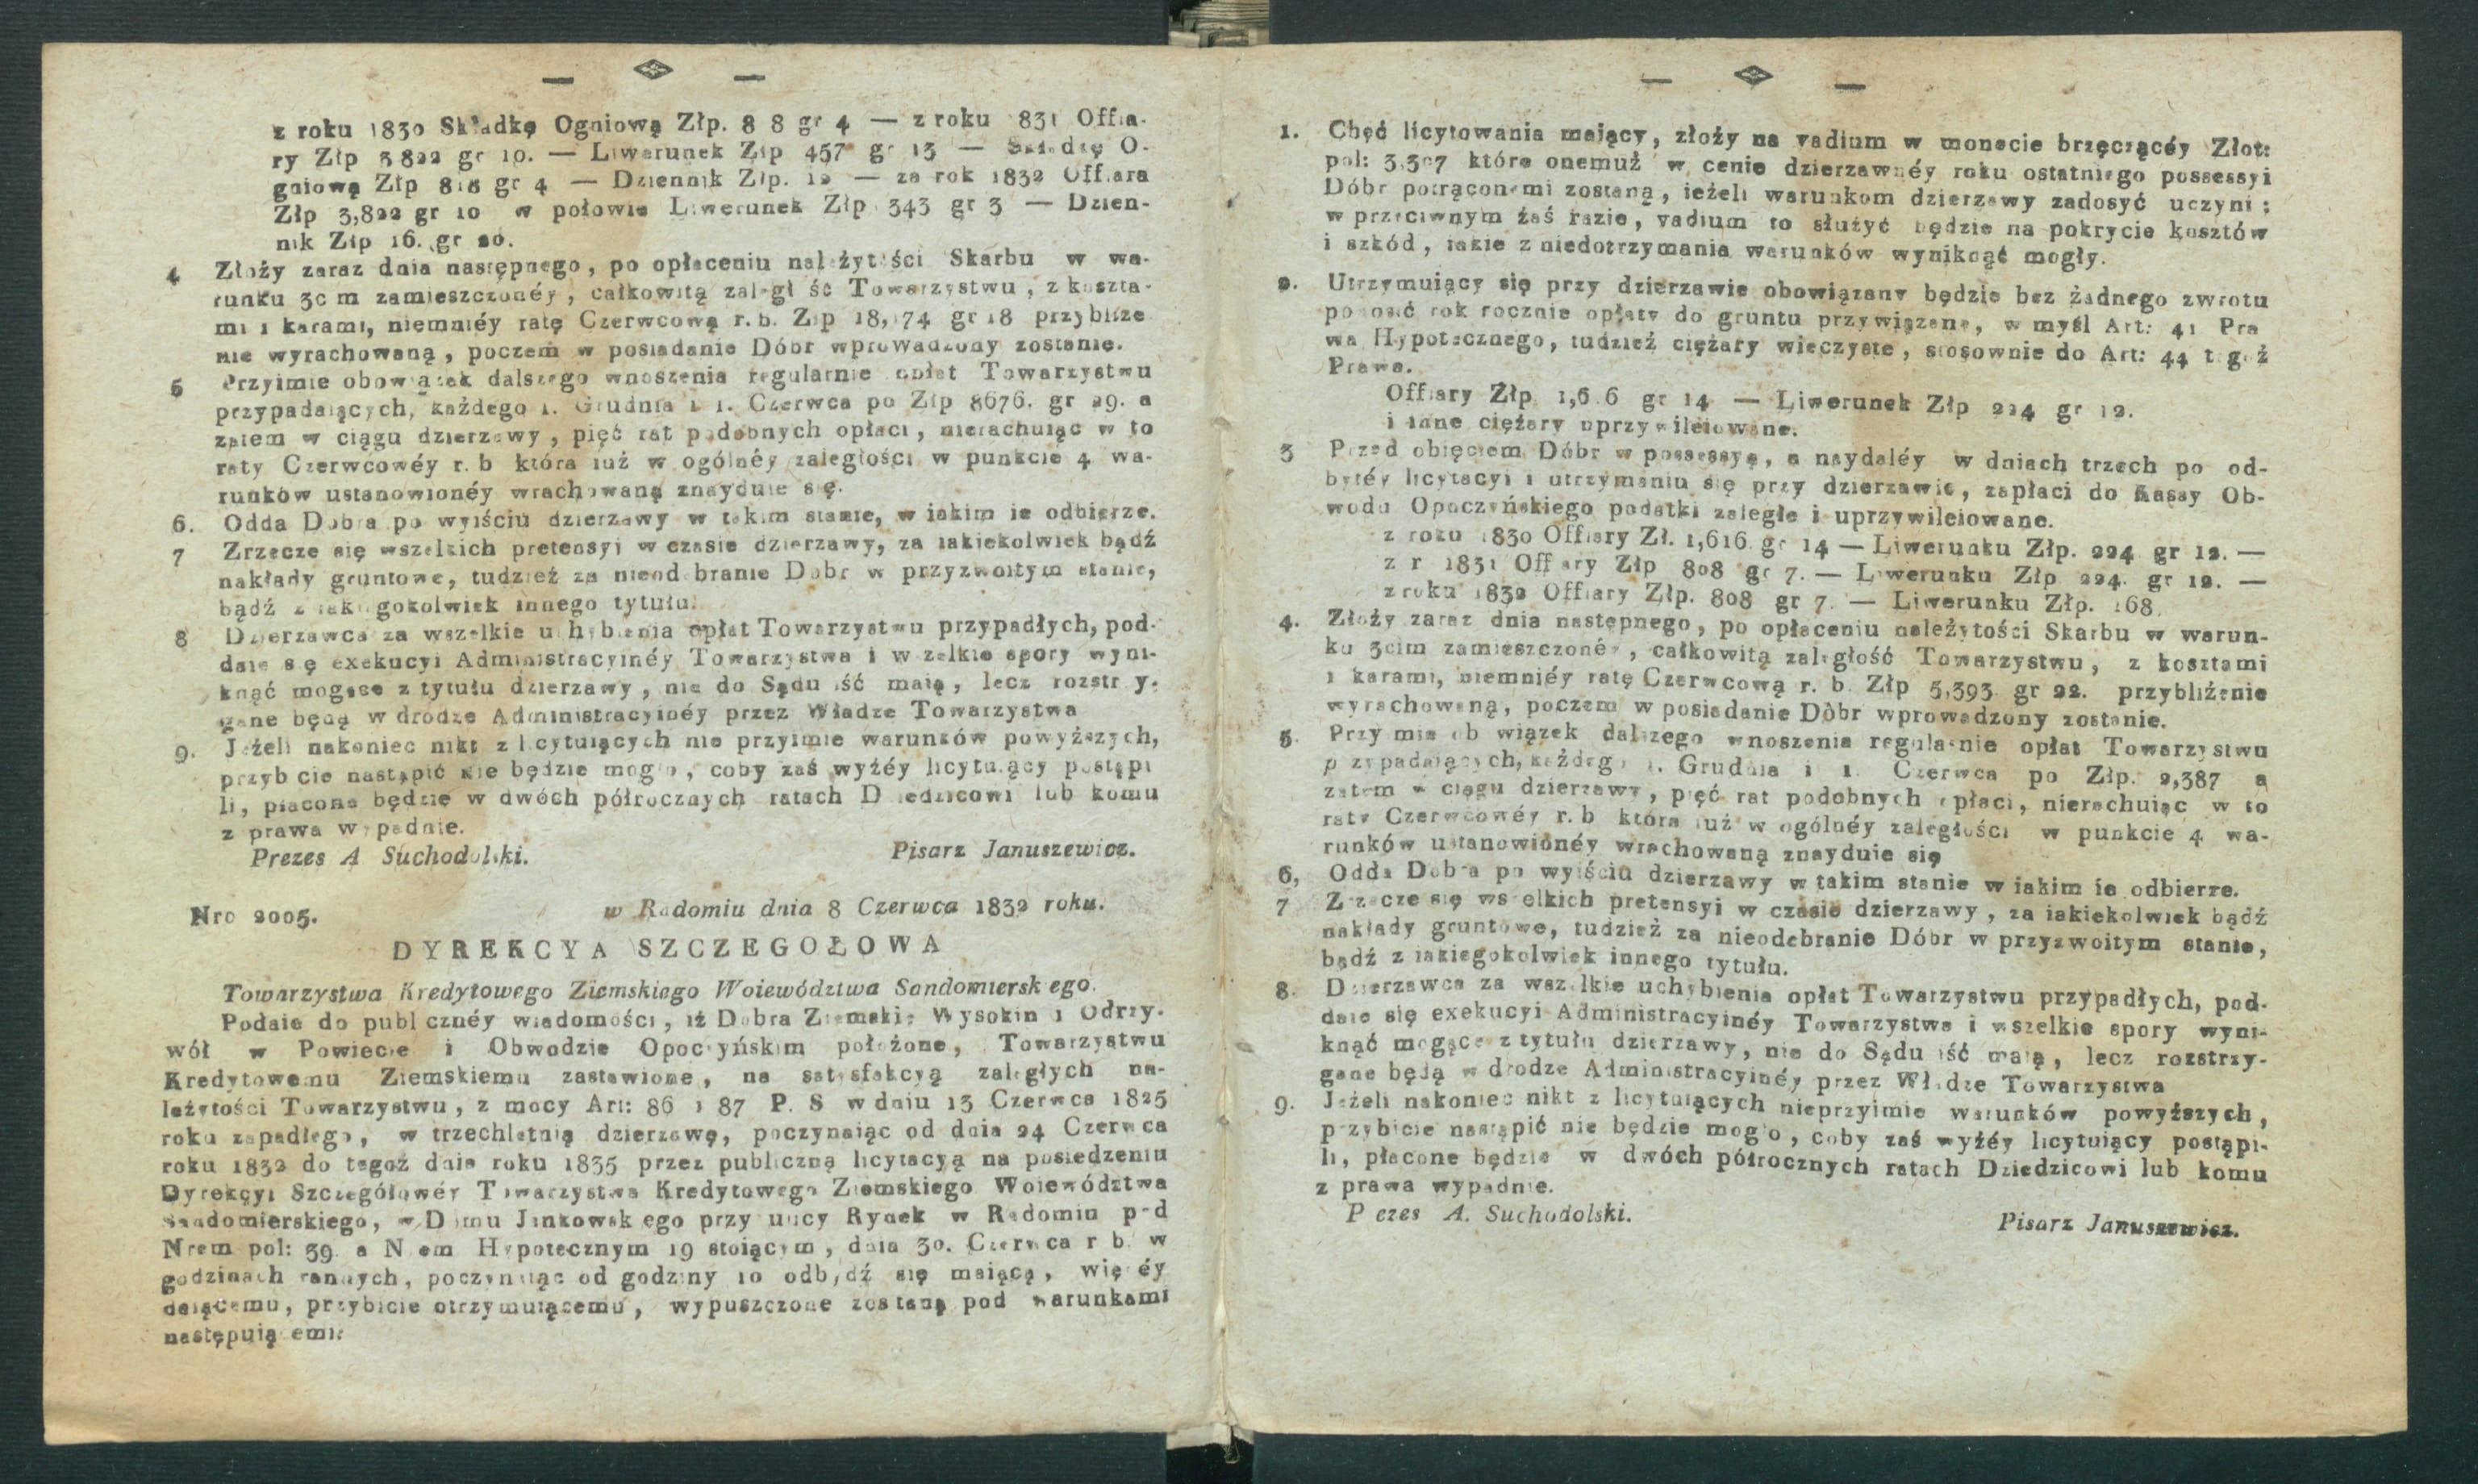 z roku 1830 Składkę Ogniową Złp. 8 8 gr 4 — z roku 831 Offia-
ry Złp 3 822 gr 10. — Liwerunek Złp 457 gr 13 — Składkę O-
gniową Złp 818 gr 4 — Dziennik Złp. 12 — za rok 1832 Offiara
Złp 3,822 gr 10 w połowie Liwerunek Złp 343 gr 3 — Dzien-
nik Złp 16. gr 20.
4 Złoży zaraz dnia następnego, po opłaceniu należytości Skarbu w wa-
runku 3c m zamieszczonéy, całkowitą zaległ ść Towarzystwu, z koszta-
mi i karami, niemniéy ratę Czerwcową r. b. Złp 18,174 gr 18 przybliże
nie wyrachowaną, poczem w posiadanie Dóbr wprowadzony zostanie.
5 Przyimie obowiązek dalszego wnoszenia regularnie opłat Towarzystwu
przypadaiących, każdego 1. Grudnia i 1. Czerwca po Złp 8676. gr 29. a
zatem w ciągu dzierzawy, pięć rat podobnych opłaci, nierachuiąc w to
raty Czerwcowéy r. b która iuż w ogólnéy zaległości w punkcie 4 wa-
runków ustanowionéy wrachowaną znayduie się.
6. Odda Dobra po wyiściu dzierzawy w takim stanie, w iakim ie odbierze.
7 Zrzecze się wszelkich pretensyi w czasie dzierzawy, za iakiekolwiek bądź
nakłady gruntowe, tudzież za nieodebranie Dobr w przyzwoitym stanie,
bądź z iakiegokolwiek innego tytułu.
8 Dzierzawca za wszelkie uchybienia opłat Towarzystwu przypadłych, pod-
daie się exekucyi Administracyinéy Towarzystwa i wszelkie spory wyni-
knąć mogące z tytułu dzierzawy, nie do Sądu iść maią, lecz rozstrzy-
gane będą w drodze Administracyinéy przez Władze Towarzystwa
9. Jeżeli nakoniec nikt z licytuiących nie przyimie warunków powyższych,
przybicie nastąpić nie będzie mogło, coby zaś wyżéy licytuiący postąpi
li, płacone będzie w dwóch półrocznych ratach Dziedzicowi lub komu
z prawa wypadnie.
Prezes A Suchodolski. Pisarz Januszewicz.
Nro 2005. w Radomiu dnia 8 Czerwca 1832 roku.
DYREKCYA SZCZEGOŁOWA
Towarzystwa Kredytowego Ziemskiego Woiewództwa Sandomiersk ego.
Podaie do publicznéy wiadomości, iż Dobra Ziemskie Wysokin i Odrzy-
wół w Powiecie i Obwodzie Opoczyńskim położone, Towarzystwu
Kredytowemu Ziemskiemu zastawione, na satysfakcyą zaległych na-
leżytości Towarzystwu, z mocy Art: 86 i 87 P. S w dniu 13 Czerwca 1825
roku zapadłego, w trzechletnią dzierzawę, poczynaiąc od dnia 24 Czerwca
roku 1832 do tegoż dnia roku 1835 przez publiczną licytacyą na posiedzeniu
Dyrekcyi Szczegółowéy Towarzystwa Kredytowego Ziemskiego Woiewództwa
Sandomierskiego, w Domu Jankowsk ego przy ulicy Rynek w Radomiu pod
Nrem pol: 39 a Nrem Hypotecznym 19 stoiącym, dnia 30. Czerwca r b. w
godzinach rannych, poczynaiąc od godziny 10 odbydź się maiącą, więcéy
daiącemu, przybicie otrzymuiącemu, wypuszczone zostaną pod warunkami
następuiącemi:
1. Chęć licytowania maiący, złoży na vadium w monecie brzęczącéy Złot:
pol: 3,307 które onemuż w cenie dzierzawnéy roku ostatniego possessyi
Dóbr potrąconemi zostaną, ieżeli warunkom dzierzawy zadosyć uczyni;
w przeciwnym zaś razie, vadium to służyć będzie na pokrycie kosztów
i szkód, iakie z niedotrzymania warunków wyniknąć mogły.
2. Utrzymuiący się przy dzierzawie obowiązany będzie bez żadnego zwrotu
ponosić rok rocznie opłaty do gruntu przywiązane, w myśl Art: 41 Pra
wa Hypotecznego, tudzież ciężary wieczyste, stosownie do Art: 44 tegoż
Prawa.
Offiary Złp 1,6 6 gr 14 — Liwerunek Złp 224 gr 12.
i inne ciężary uprzywileiowane.
3 Przed obięciem Dóbr w possessyę, a naydaléy w dniach trzech po od-
bytéy licytacyi i utrzymaniu się przy dzierzawie, zapłaci do Kassy Ob-
wodu Opoczyńskiego podatki zaległe i uprzywileiowane.
z roku 1830 Offiary Zł. 1,616. gr 14 — Liwerunku Złp. 224 gr 12. —
z r 1831 Offiary Złp 808 gr 7. — Liwerunku Złp 224. gr 12. —
z roku 1832 Offiary Złp. 808 gr 7. — Liwerunku Złp. 168.
4. Złoży zaraz dnia następnego, po opłaceniu należytości Skarbu w warun-
ku 3cim zamieszczonéy, całkowitą zaległość Towarzystwu, z kosztami
i karami, niemniéy ratę Czerwcową r. b. Złp 5,393 gr 22. przybliżenie
wyrachowaną, poczem w posiadanie Dòbr wprowadzony zostanie.
5. Przyimie ob wiązek dalszego wnoszenia regularnie opłat Towarzystwu
przypadaiących, każdego 1. Grudnia i 1. Czerwca po Złp. 2,387 a
zatem w ciągu dzierzawy, pięć rat podobnych opłaci, nierachuiąc w to
raty Czerwcowéy r. b która iuż w ogólnéy zaległości w punkcie 4 wa-
runków ustanowionéy wrachowaną znayduie się
6, Odda Dobra po wyiściu dzierzawy w takim stanie w iakim ie odbierze.
7 Zrzecze się wszelkich pretensyi w czasie dzierzawy, za iakiekolwiek bądź
nakłady gruntowe, tudzież za nieodebranie Dóbr w przyzwoitym stanie,
bądź z iakiegokolwiek innego tytułu.
8. Dzierzawca za wszelkie uchybienia opłat Towarzystwu przypadłych, pod-
daie się exekucyi Administracyinéy Towarzystwa i wszelkie spory wyni-
knąć mogące z tytułu dzierzawy, nie do Sądu iść maią, lecz rozstrzy-
gane będą w drodze Administracyinéy przez Władze Towarzystwa
9. Jeżeli nakoniec nikt z licytuiących nieprzyimie warunków powyższych,
przybicie nastąpić nie będzie mogło, coby zaś wyżéy licytuiący postąpi-
li, płacone będzie w dwóch półrocznych ratach Dziedzicowi lub komu
z prawa wypadnie.
P ezes A. Suchodolski. Pisarz Januszewicz.